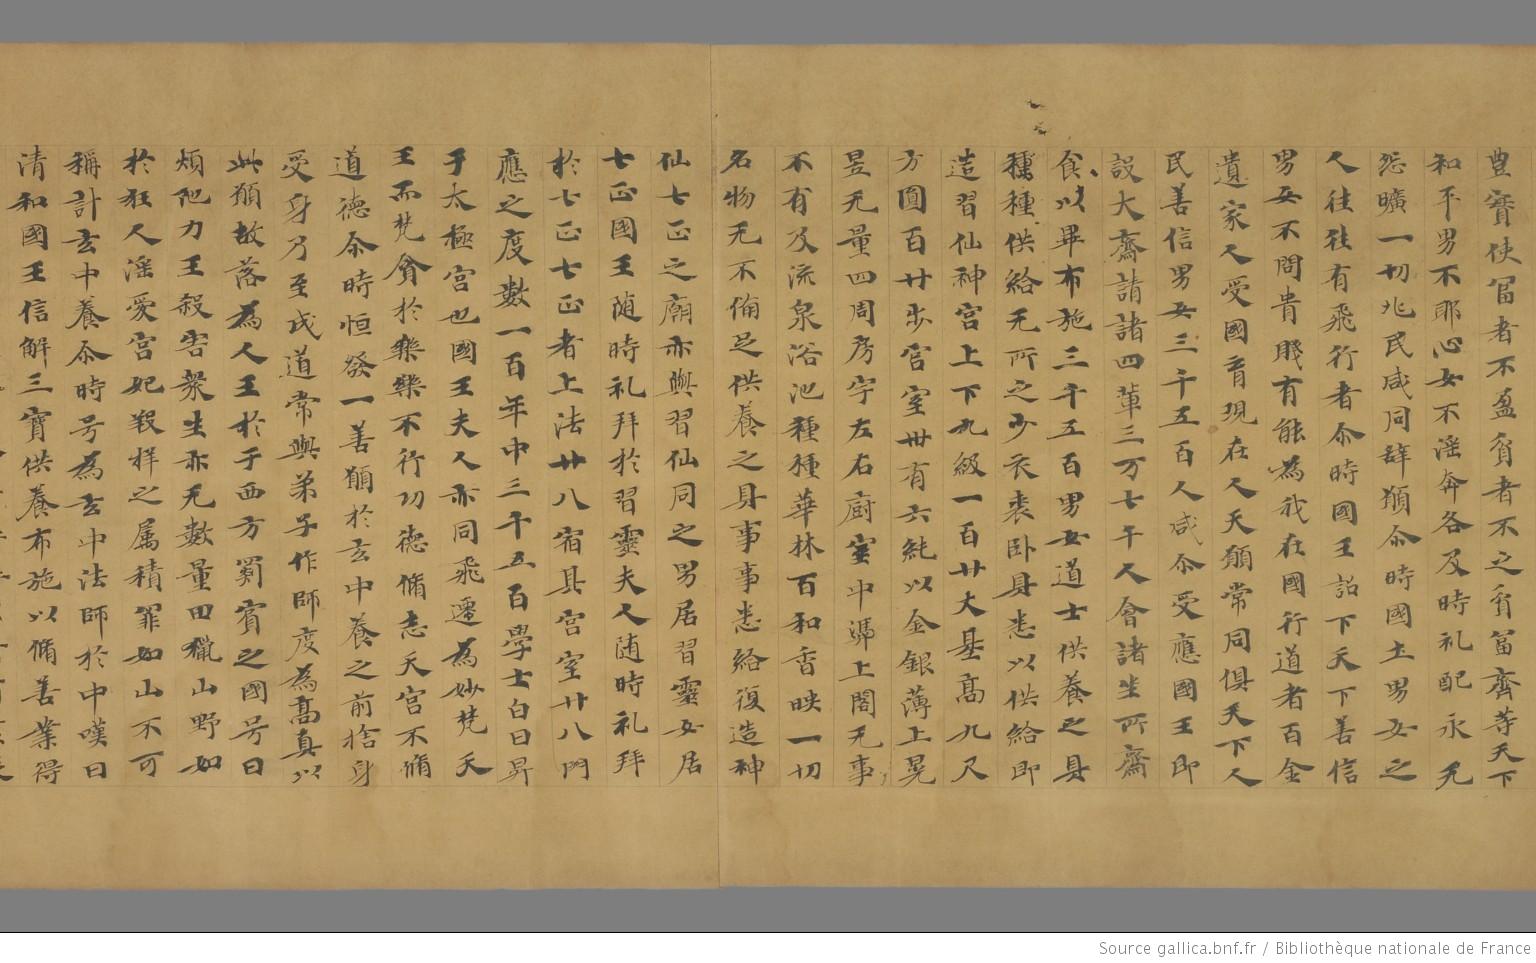 豊寶使冨者不盈貧者不之貧冨齊等天下
和平男不耶心女不滛奔各及時礼配永无
怨曠一切兆民咸同辞願尒時國土男女之
人往往有飛行者尒時國王詔下天下善信
男女不問貴賤有能為我在國行道者百金
遺家人受國育現在人天願常同俱天下人
民善信男女三千五百人咸尒受應國王即
設大齋請諸四輩三万七千人會諸坐所齋
食以畢布施三千五百男女道士供養之具
種種供給无所之少衣裘卧具悉以供給即
造習仙神宮上下九級一百廿丈基高九尺
方圓百廿步宮室卌有六純以金銀薄上晃
昱无量四周房宇左右廚室中㴲上閣无事
不有及流泉浴池種種華林百和香映一切
名物无不俻足供養之具事事悉給復造神
仙七正之廟亦與習仙同之男居習靈女居
七正國王随時礼拜於習靈夫人随時礼拜
於七正七正者上法廿八宿具宮室廿八門
應之度數一百年中三千五百學士白日昇
于太極宮也國王夫人亦同飛遷為妙梵天
王而梵貪於樂樂不行功德脩志天宮不脩
道德尒時恒發一善願於玄中養之前捨身
受身乃至成道常與弟子作師度為高真以
此願故落為人王於于西方罽賓之國号曰
煩陁力王殺害衆生亦无數量田獵山野如
於狂人滛愛宮妃煞牂之属積罪如山不可
稱計玄中養尒時号為玄中法師於中嘆曰
清和國王信解三寶供養布施以脩善業得
Source gallica.bnf.fr / Bibliothèque nationale de France